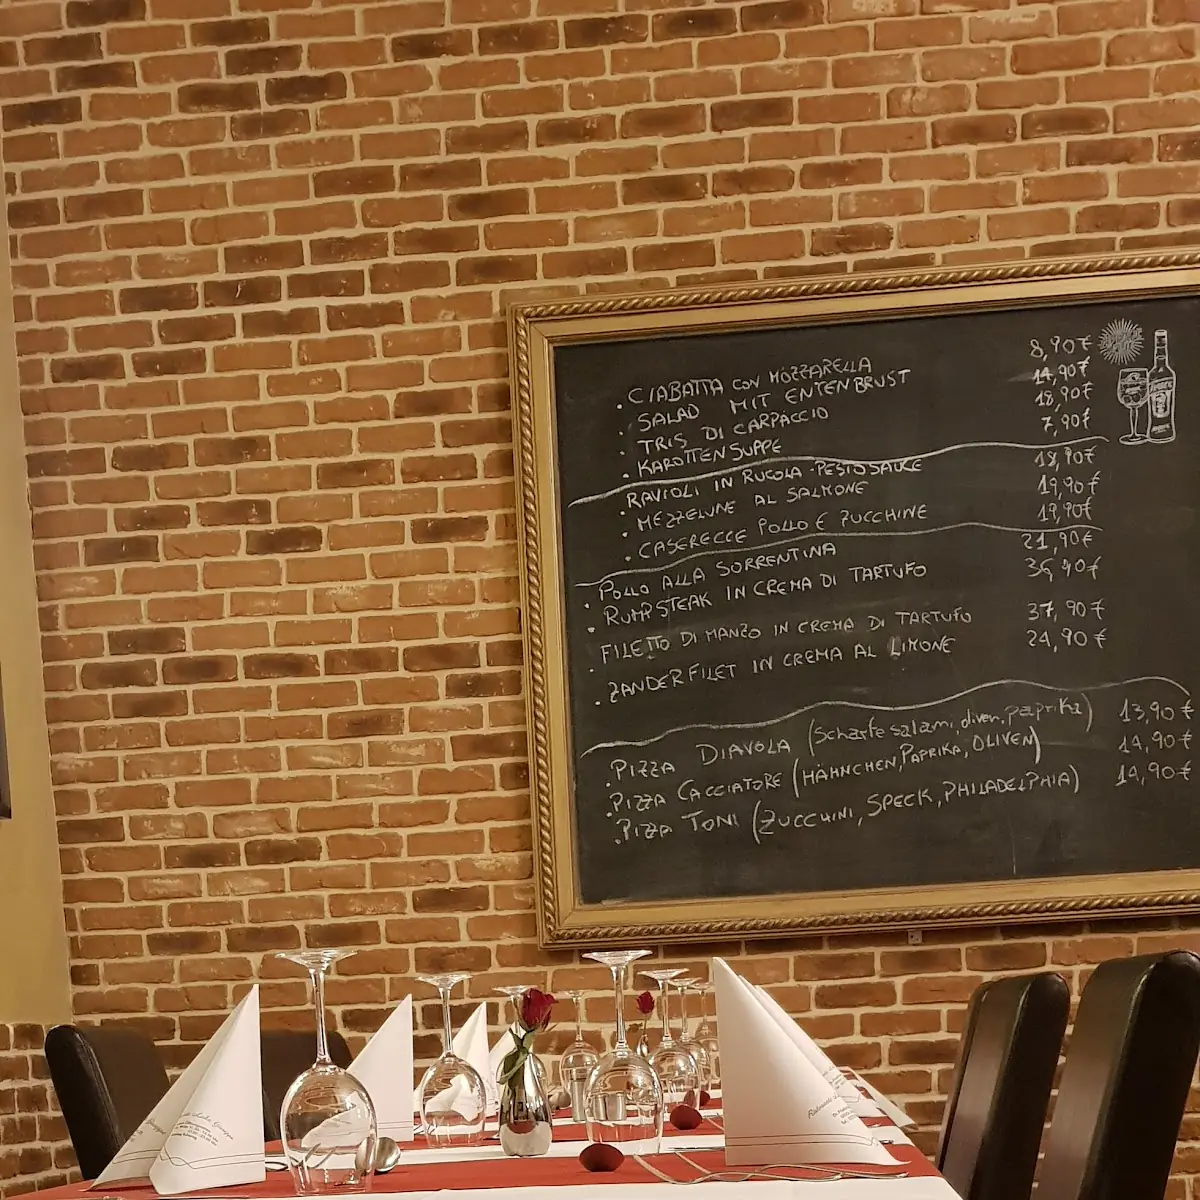 . CIABATTA CON MOZZARELLA 8,90€
. SALAD MIT ENTENBRUST 14,90€
. TRIS DI CARPACCIO 18,90€
. KAROTTENSUPPE 7,90€
. RAVIOLI IN RUCOLA-PESTOSAUCE 18,90€
. MEZZELUNE AL SALMONE 19,90€
. CASERECCE POLLO E ZUCCHINE 19,90€
. POLLO ALLA SORRENTINA 21,90€
. RUMPSTEAK IN CREMA DI TARTUFO 36,90€
. FILETTO DI MANZO IN CREMA DI TARTUFO 37,90€
. ZANDERFILET IN CREMA AL LIMONE 24,90€
. PIZZA DIAVOLA (Scharfe salami, oliven, paprika) 13,90€
. PIZZA CACCIATORE (HÄHNCHEN, PAPRIKA, OLIVEN) 14,90€
. PIZZA TONI (ZUCCHINI, SPECK, PHILADELPHIA) 14,90€
Ristorante